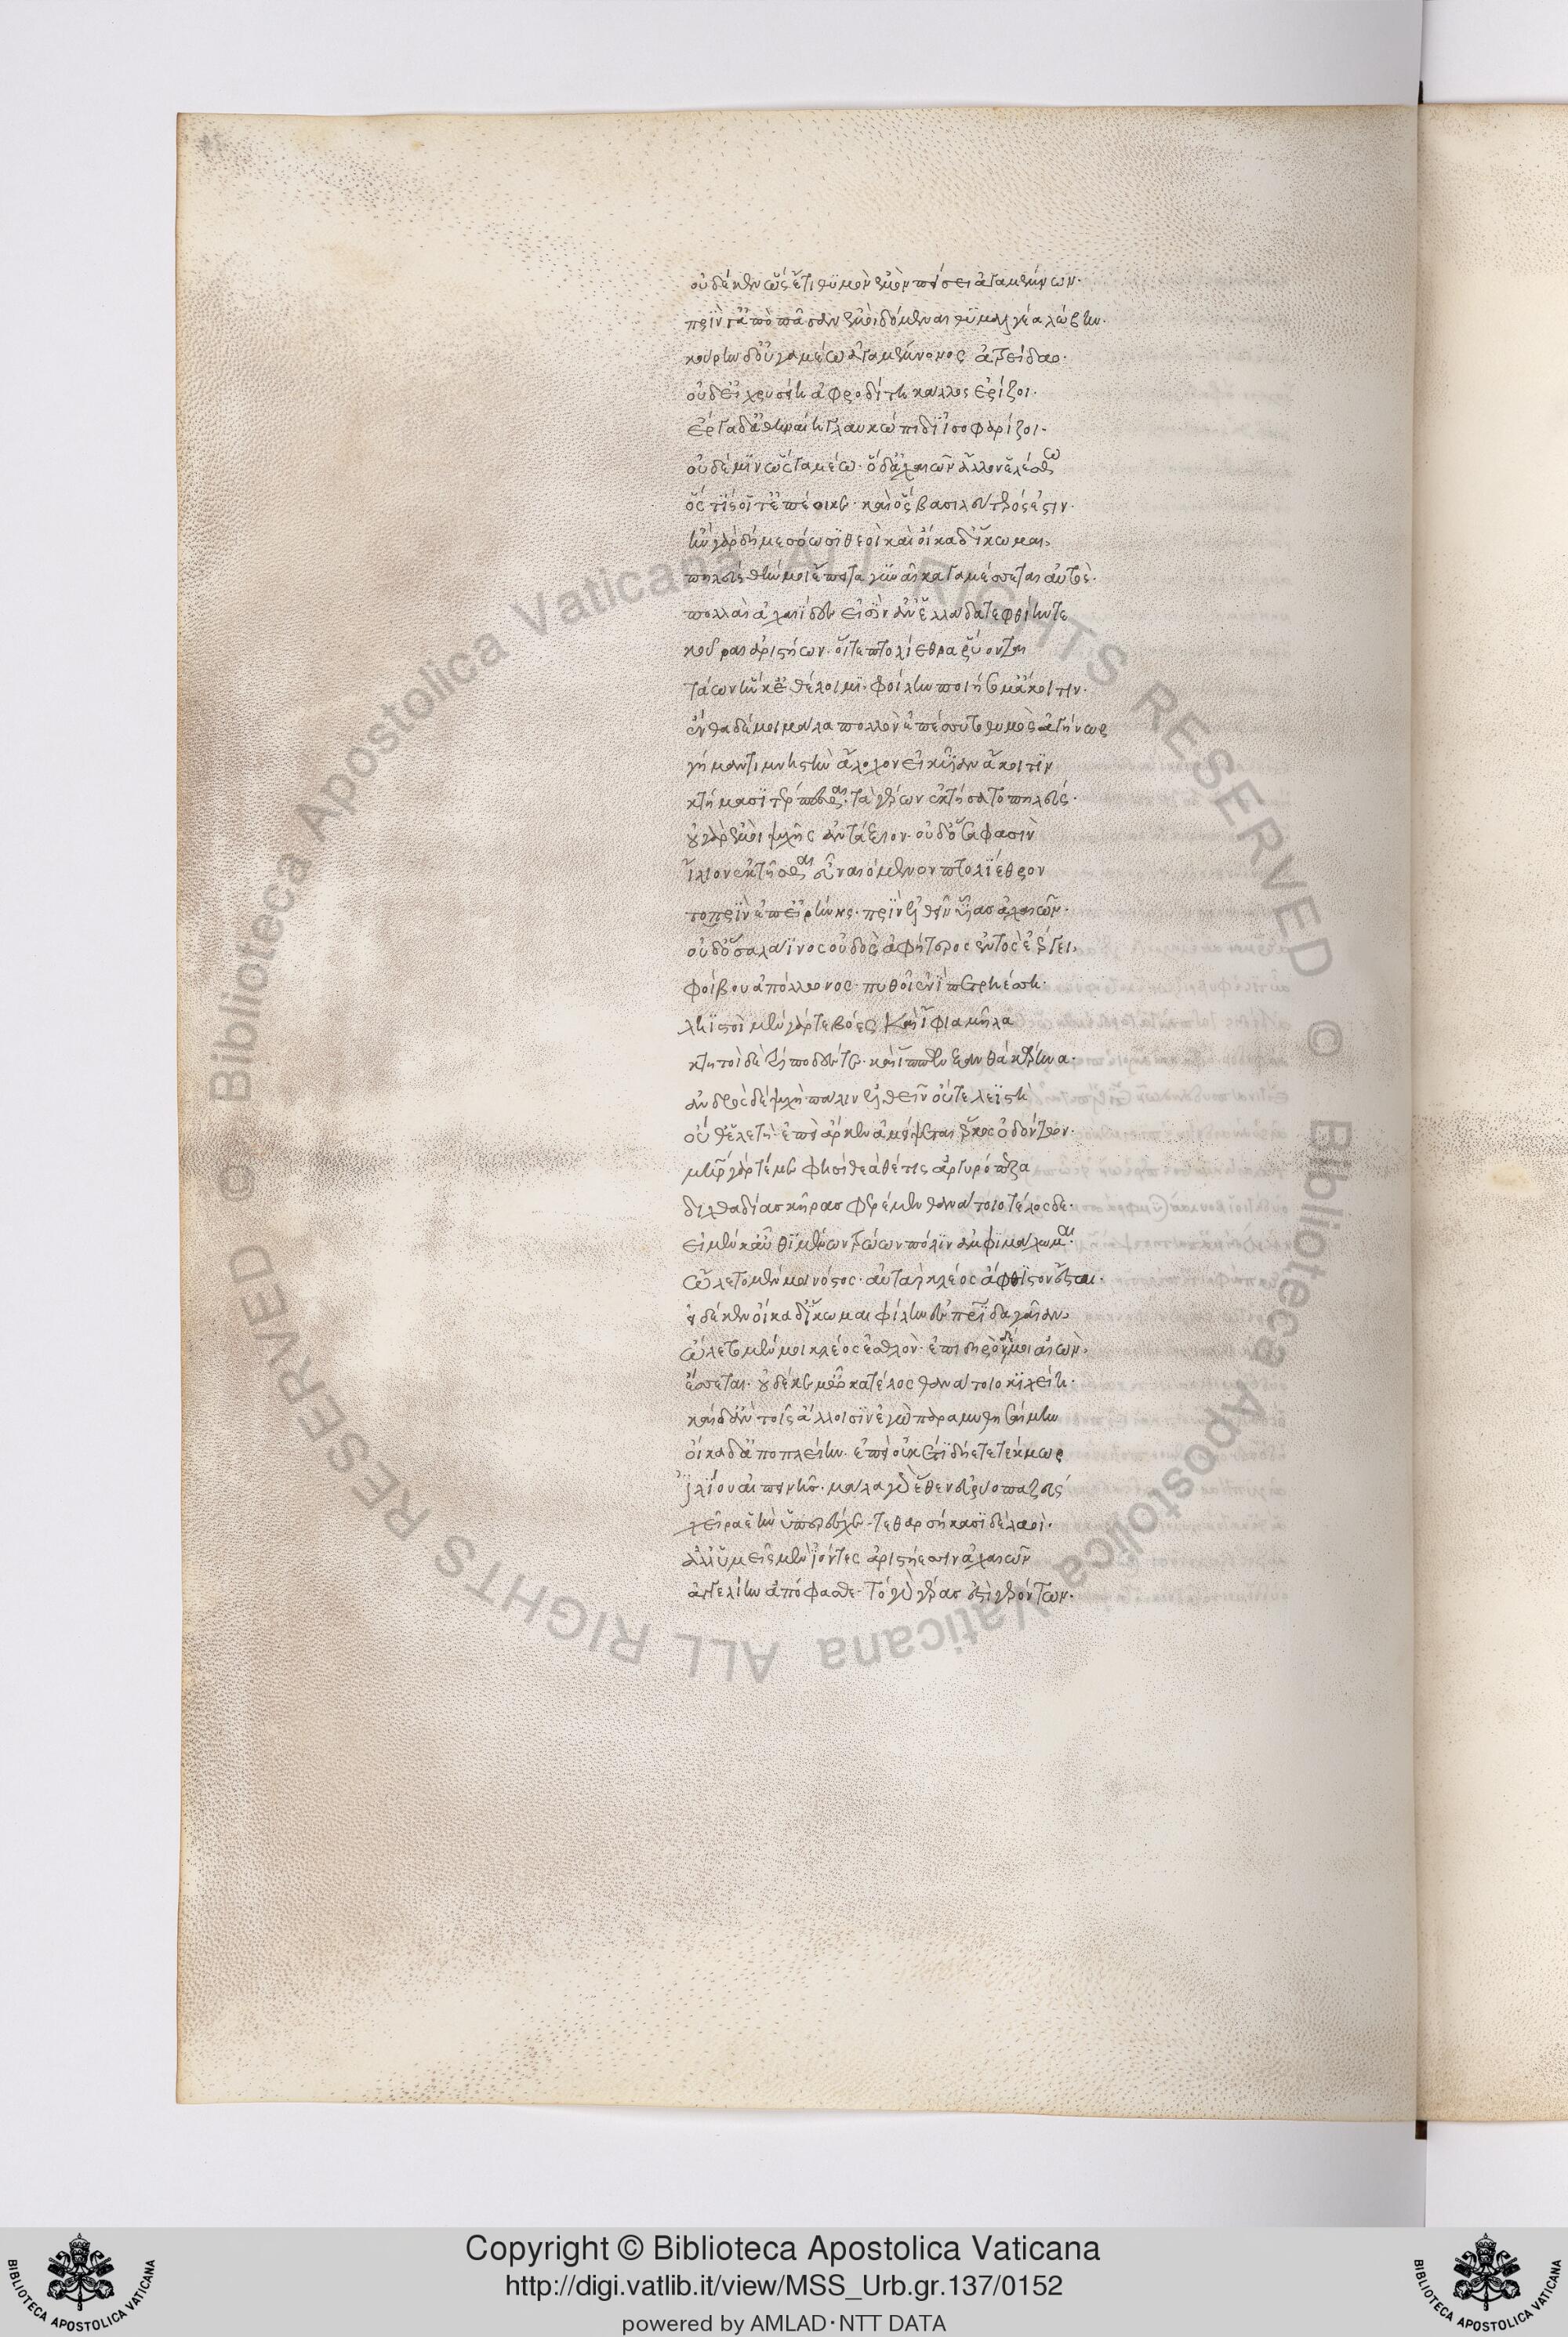 οὐδέ κεν ὥς ἔτι θυμὸν ἐμὸν πείσει ἀγαμέμνων·
πρὶν γ' ἀπὸ πᾶσαν ἐμοὶ δόμεναι θυμαλγέα λώβην·
κούρην δ' οὐ γαμέω ἀγαμέμνονος ἀτρείδαο·
οὐδ' εἰ χρυσείη ἀφροδίτη κάλλος ἐρίζοι·
ἔργα δ' ἀθηναίη γλαυκώπιδι ἰσοφαρίζοι·
οὐδέ μιν ὧς γαμέω· ὁ δ' ἀχαιῶν ἄλλον ἑλέσθω
ὅς τις οἷ τ' ἐπέοικε· καὶ ὃς βασιλεύτερός ἐστιν·
ἢν γὰρ δή με σόωσι θεοὶ καὶ οἴκαδ' ἵκωμαι,
πηλεύς θήν μοι ἔπειτα γυναῖκα γαμέσσεται αὐτὸς·
πολλαὶ ἀχαιίδες εἰσὶν ἀν' ἑλλάδα τε φθίην τε
κοῦραι ἀριστήων· οἵ τε πτολίεθρα ῥύονται
τάων ἥν κ' ἐθέλοιμι· φίλην ποιήσομ' ἄκοιτιν·
ἔνθα δέ μοι μάλα πολλὸν ἐπέσσυτο θυμὸς ἀγήνωρ
γήμαντι μνηστὴν ἄλοχον εἰκυῖαν ἄκοιτιν
κτήμασι τέρπεσθαι· τὰ γέρων ἐκτήσατο πηλεύς·
οὐ γὰρ ἐμοὶ ψυχῆς ἀντάξιον· οὐδ' ὅσα φασὶν
ἴλιον ἐκτῆσθαι εὖ ναιόμενον πτολίεθρον
τοπρὶν ἐπ' εἰρήνης· πρὶν ἐλθεῖν υἷας ἀχαιῶν·
οὐδ' ὅσα λάϊνος οὐδὸς ἀφήτορος ἐντὸς ἐέργει,
φοίβου ἀπόλλωνος· πυθοῖ ἐνὶ πετρηέσση·
ληϊστοὶ μὲν γάρ τε βόες καὶ ἴφια μῆλα
κτητοὶ δὲ τρίποδές τε· καὶ ἵππων ξανθὰ κάρηνα·
ἀνδρὸς δὲ ψυχὴ πάλιν ἐλθεῖν οὔτε λεϊστὴ
οὔθ' ἑλετὴ· ἐπεὶ ἄρ κεν ἀμείψεται ἕρκος ὀδόντων·
μήτηρ γάρ τέ με φησὶ θεὰ θέτις ἀργυρόπεζα
διχθαδίας κῆρας φερέμεν θανάτοιο τέλος δε·
εἰ μέν κ' αὖθι μένων τρώων πόλιν ἀμφιμάχωμαι
ὤλετο μέν μοι νόστος· ἀτὰρ κλέος ἄφθιτον ἔσται·
εἰ δέ κεν οἴκαδ' ἵκωμαι φίλην ἐς πατρίδα γαῖαν,
ὤλετό μέν μοι κλέος ἐσθλὸν· ἐπὶ δηρὸν δέ μοι αἰὼν,
ἔσσεται· οὐδέ κέ μ' ὦκα τέλος θανάτοιο κιχείη·
καὶ δ' ἂν τοῖς ἄλλοισιν ἐγὼ παραμυθησαίμην
οἴκαδ' ἀποπλείειν· ἐπεὶ οὐκέτι δήετε τέκμωρ
ἰλίου αἰπεινῆς· μάλα γάρ ἑθεν εὐρύοπα ζεύς
χεῖρα ἑὴν ὑπερέσχε· τεθαρσήκασι δὲ λαοὶ·
ἀλλ' ὑμεῖς μὲν ἰόντες ἀριστήεσσιν ἀχαιῶν
ἀγγελίην ἀπόφασθε· τὸ γὰρ γέρας ἐστὶ γερόντων·